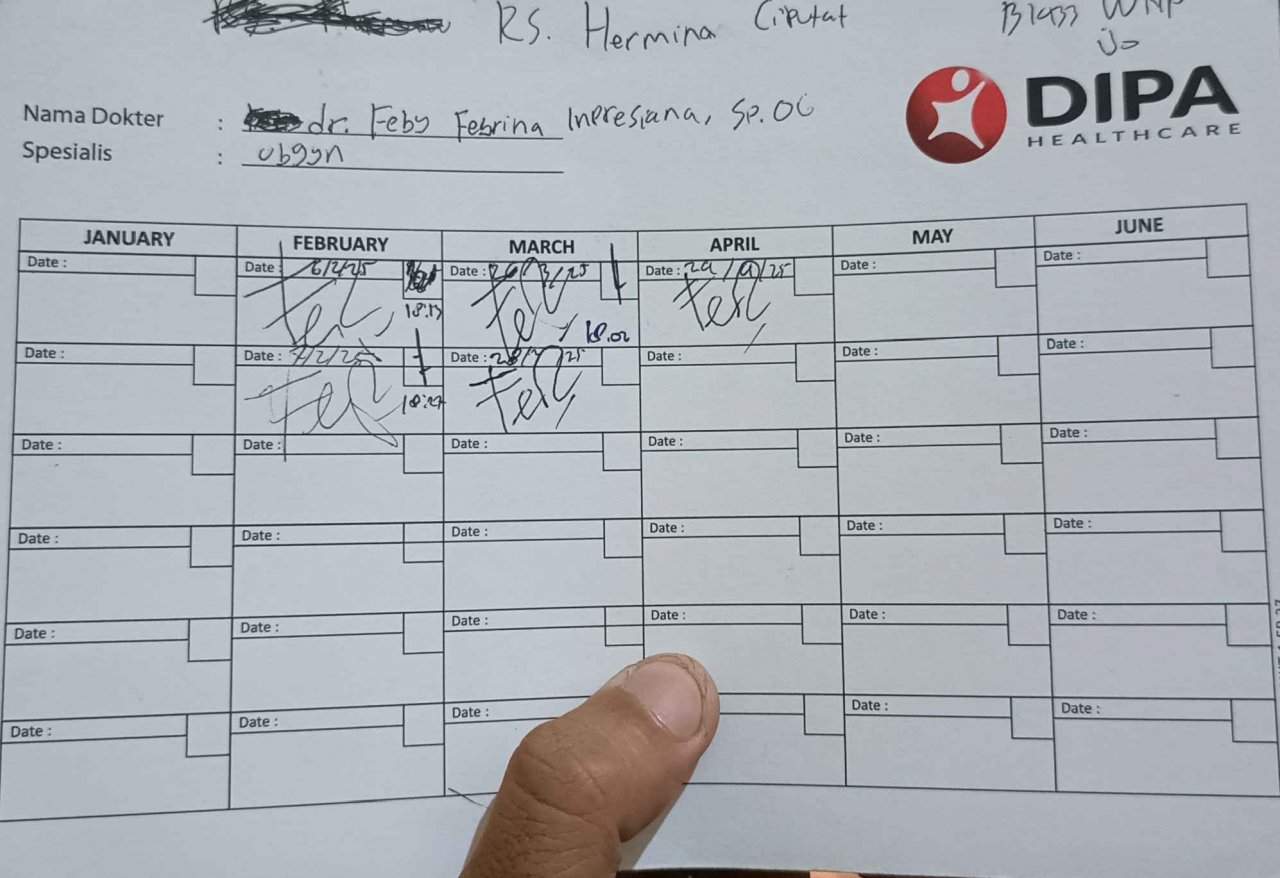 RS. Hermina Ciputat
DIPA
HEALTHCARE
Nama Dokter : dr. Feby Febrina Inpresiana, Sp.OG
Spesialis : Obgyn
JANUARY FEBRUARY MARCH APRIL MAY JUNE
Date : Date : 6/2/25 Date : /3/25 Date : 29/4/25 Date : Date :
18:13 18.02
Date : Date : 7/2/25 Date : 28/ /25 Date : Date : Date :
18:27
Date : Date : Date : Date : Date : Date :
Date : Date : Date : Date : Date : Date :
Date : Date : Date : Date : Date : Date :
Date : Date : Date : Date : Date :